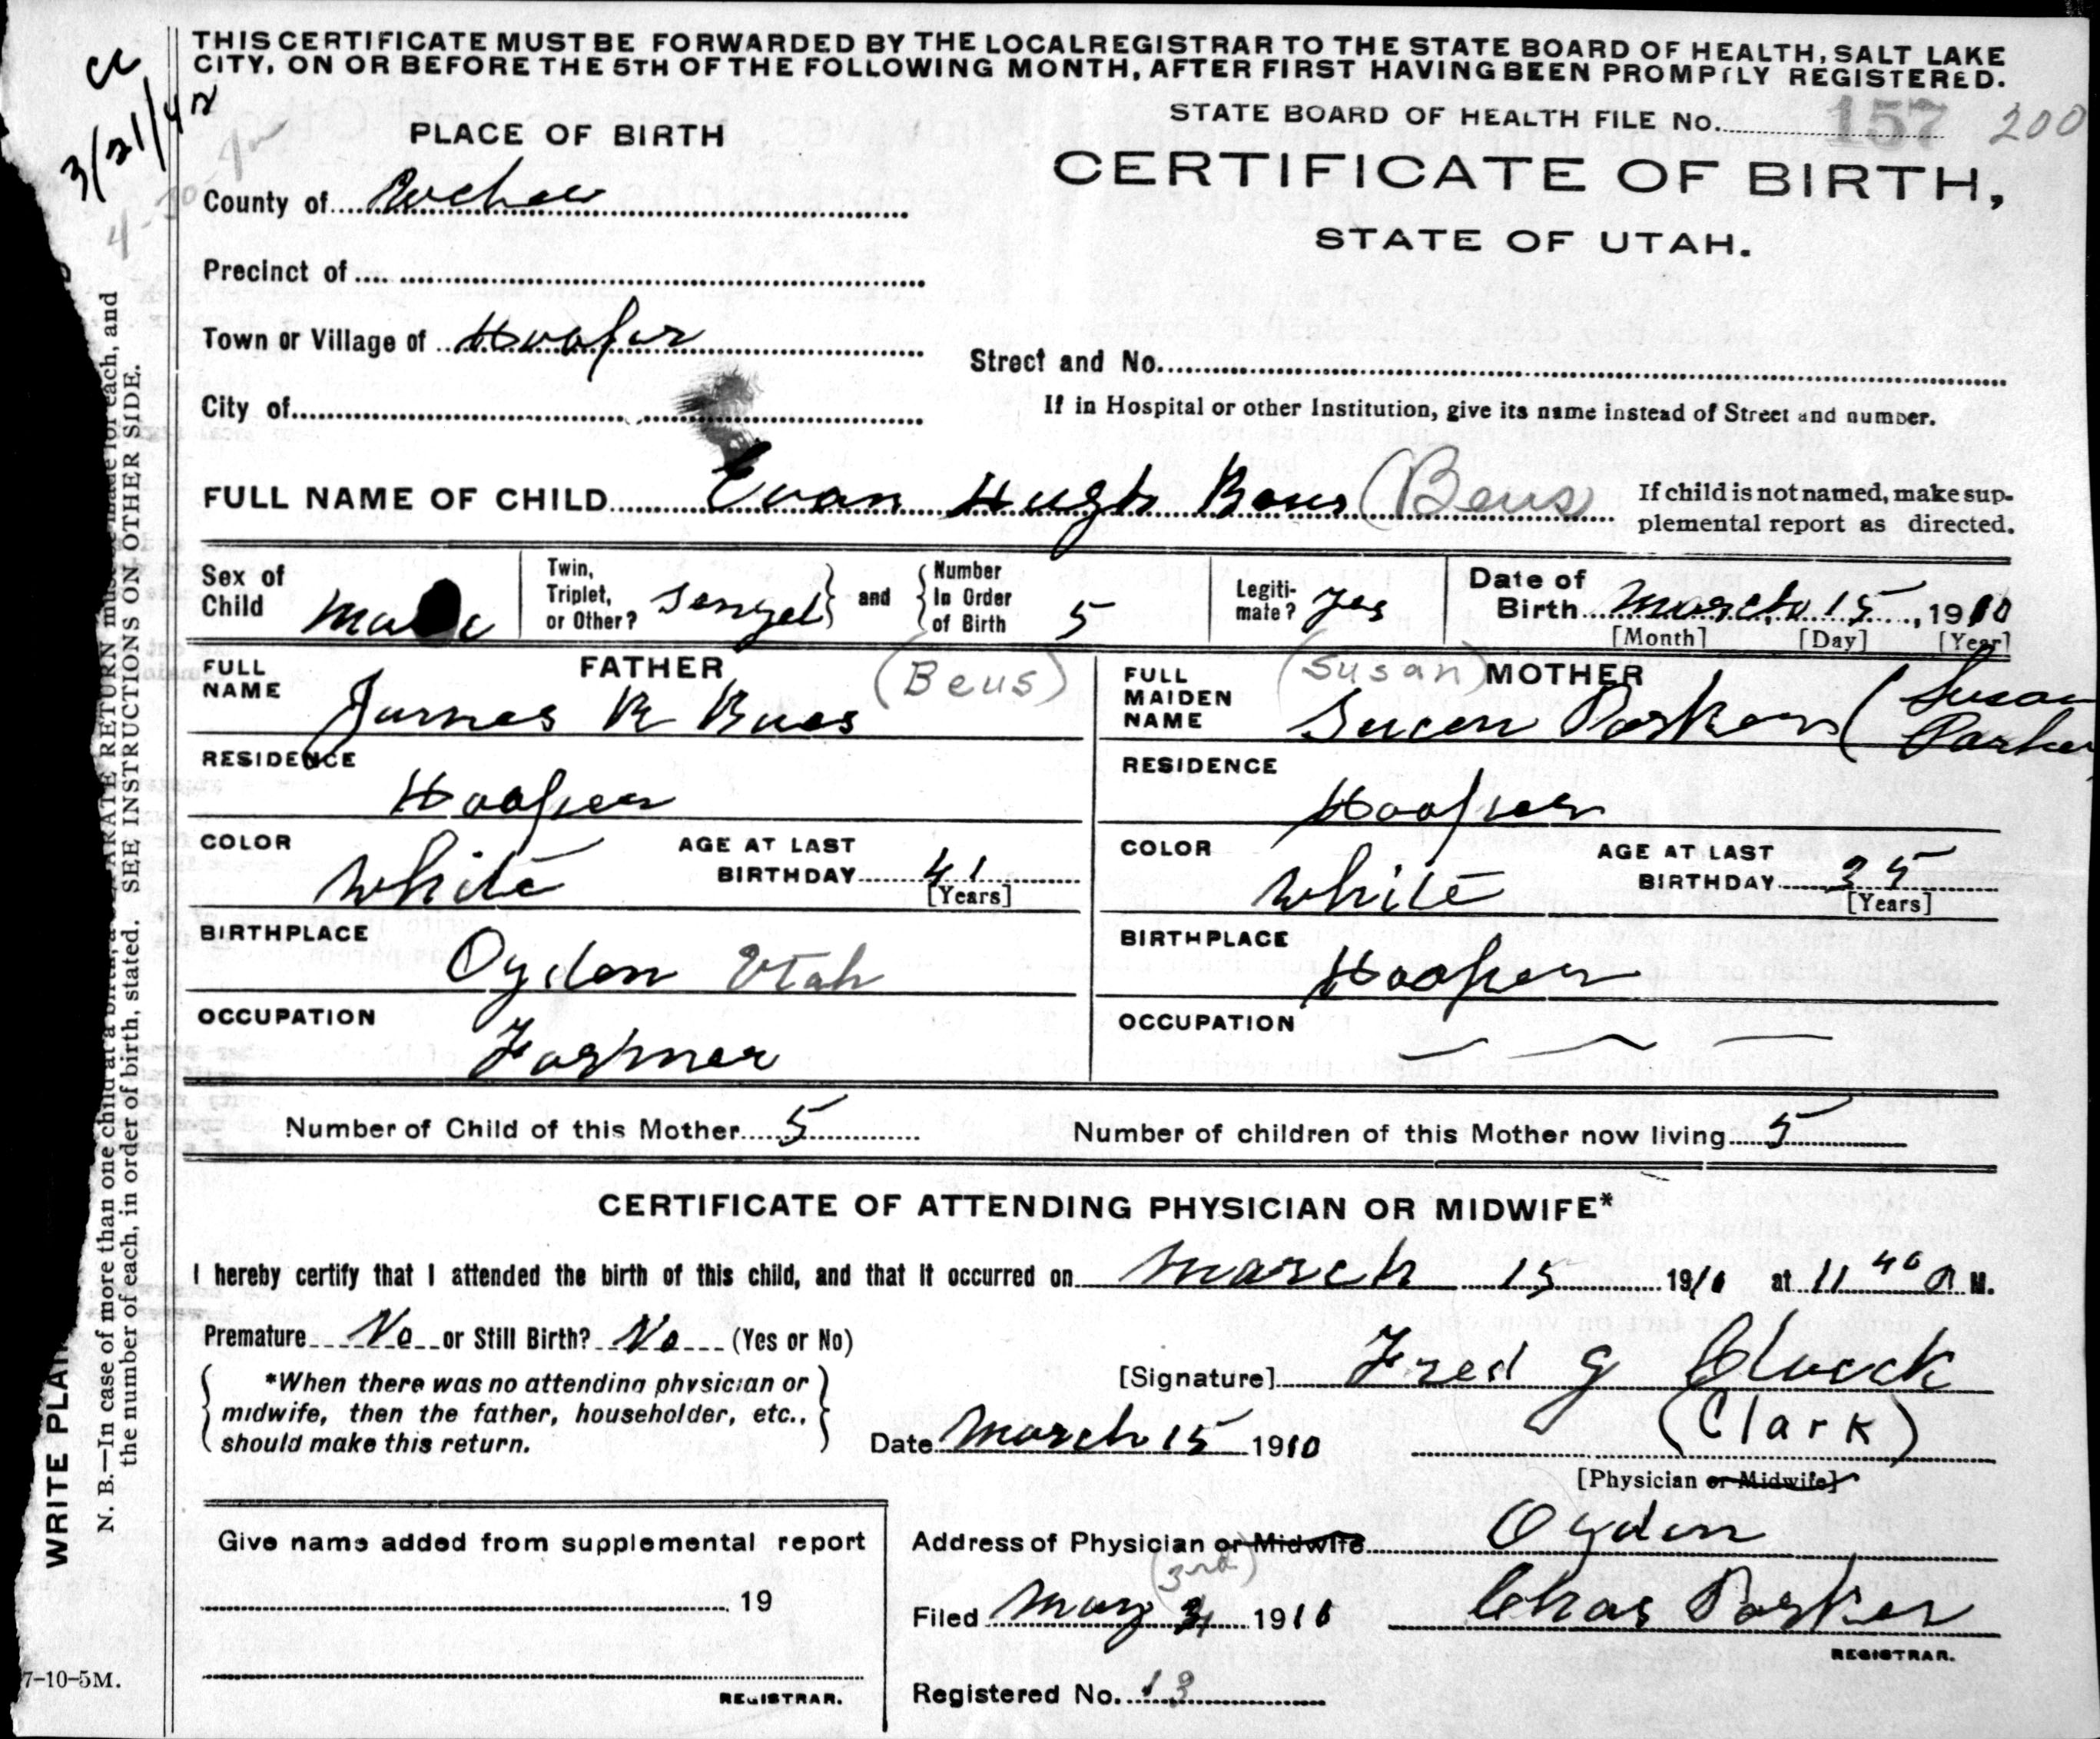 THIS CERTIFICATE MUST BE FORWARDED BY THE LOCAL REGISTRAR TO THE STATE BOARD OF HEALTH, SALT LAKE
CITY, ON OR BEFORE THE 5TH OF THE FOLLOWING MONTH, AFTER FIRST HAVING BEEN PROMPTLY REGISTERED.
cc
3/21/42
STATE BOARD OF HEALTH FILE No. 157 200
PLACE OF BIRTH
CERTIFICATE OF BIRTH,
STATE OF UTAH.
County of
Precinct of
Town or Village of Hooper
Street and No.
City of
If in Hospital or other Institution, give its name instead of Street and number.
FULL NAME OF CHILD Evan Hugh Bous (Beus)
If child is not named, make sup-
plemental report as directed.
Sex of Child Male
Twin, Triplet, or Other? Sengel and Number In Order of Birth 5
Legiti-mate? yes
Date of Birth March 15, 1910
[Month] [Day] [Year]
FATHER
FULL NAME James R Bues (Beus)
RESIDENCE
Hooper
COLOR white AGE AT LAST BIRTHDAY 41
[Years]
BIRTHPLACE
Ogden Utah
OCCUPATION
Farmer
MOTHER
FULL MAIDEN NAME (Susan) Sucen Parker (Susan Parker
RESIDENCE
Hooper
COLOR white AGE AT LAST BIRTHDAY 35
[Years]
BIRTHPLACE
Hooper
OCCUPATION
Number of Child of this Mother 5
Number of children of this Mother now living 5
CERTIFICATE OF ATTENDING PHYSICIAN OR MIDWIFE*
I hereby certify that I attended the birth of this child, and that it occurred on March 15 1910 at 11 40 A M.
Premature No or Still Birth? No (Yes or No)
*When there was no attending physician or
midwife, then the father, householder, etc.,
should make this return.
[Signature] Fred G Cluck
(Clark)
Date March 15 1910
[Physician or Midwife]
Give name added from supplemental report
19
REGISTRAR.
Address of Physician or Midwife Ogden
(3rd)
Filed May 3 1910 Chas Parker
REGISTRAR.
Registered No. 13
WRITE PLAIN
N. B.—In case of more than one child at a birth, a SEPARATE RETURN must be made for each, and
the number of each, in order of birth, stated. SEE INSTRUCTIONS ON OTHER SIDE.
7-10-5M.